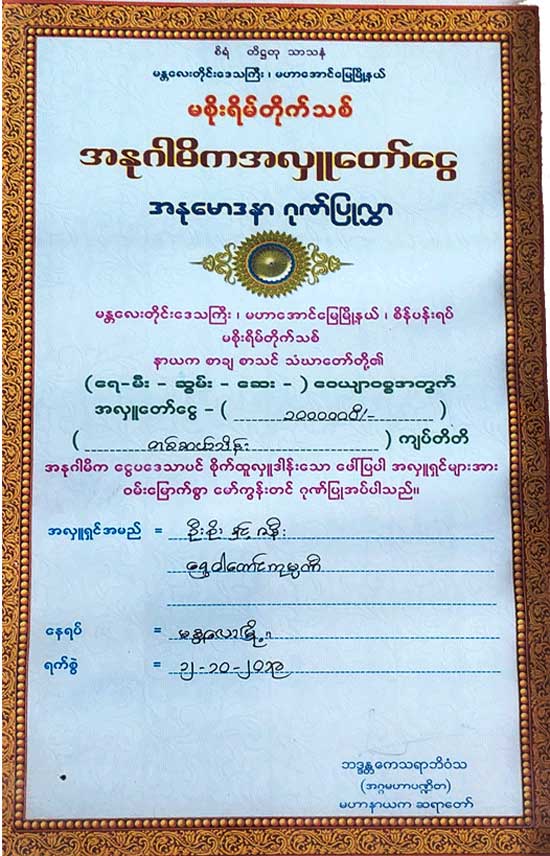 စိရံ တိဋ္ဌတု သာသနံ
မန္တလေးတိုင်းဒေသကြီး ၊ မဟာအောင်မြေမြို့နယ်
မစိုးရိမ်တိုက်သစ်
အနုဂါမိကအလှူတော်ငွေ
အနုမောဒနာ ဂုဏ်ပြုလွှာ
မန္တလေးတိုင်းဒေသကြီး ၊ မဟာအောင်မြေမြို့နယ် ၊ စိန်ပန်းရပ်
မစိုးရိမ်တိုက်သစ်
နာယက စာချ စာသင် သံဃာတော်တို့၏
(ရေ-မီး - ဆွမ်း - ဆေး - ) ဝေယျာဝစ္စအတွက်
အလှူတော်ငွေ - ( ၁၀၀၀၀၀၀ိ/- )
( တစ်ဆယ်သိန်း ) ကျပ်တိတိ
အနုဂါမိက ငွေပဒေသာပင် စိုက်ထူလှူဒါန်းသော ပေါ်ပြပါ အလှူရှင်များအား
ဝမ်းမြောက်စွာ မော်ကွန်းတင် ဂုဏ်ပြုအပ်ပါသည်။
အလှူရှင်အမည် = ဦးစိုး နှင့် ဇနီး
ရွှေဝါတောင်ကုမ္ပဏီ
နေရပ် = မန္တလေးမြို့။
ရက်စွဲ = ၃၂-၁၀-၂၀၁၃
ဘဒ္ဒန္တကေသရာဘိဝံသ
(အဂ္ဂမဟာပဏ္ဍိတ)
မဟာနာယက ဆရာတော်